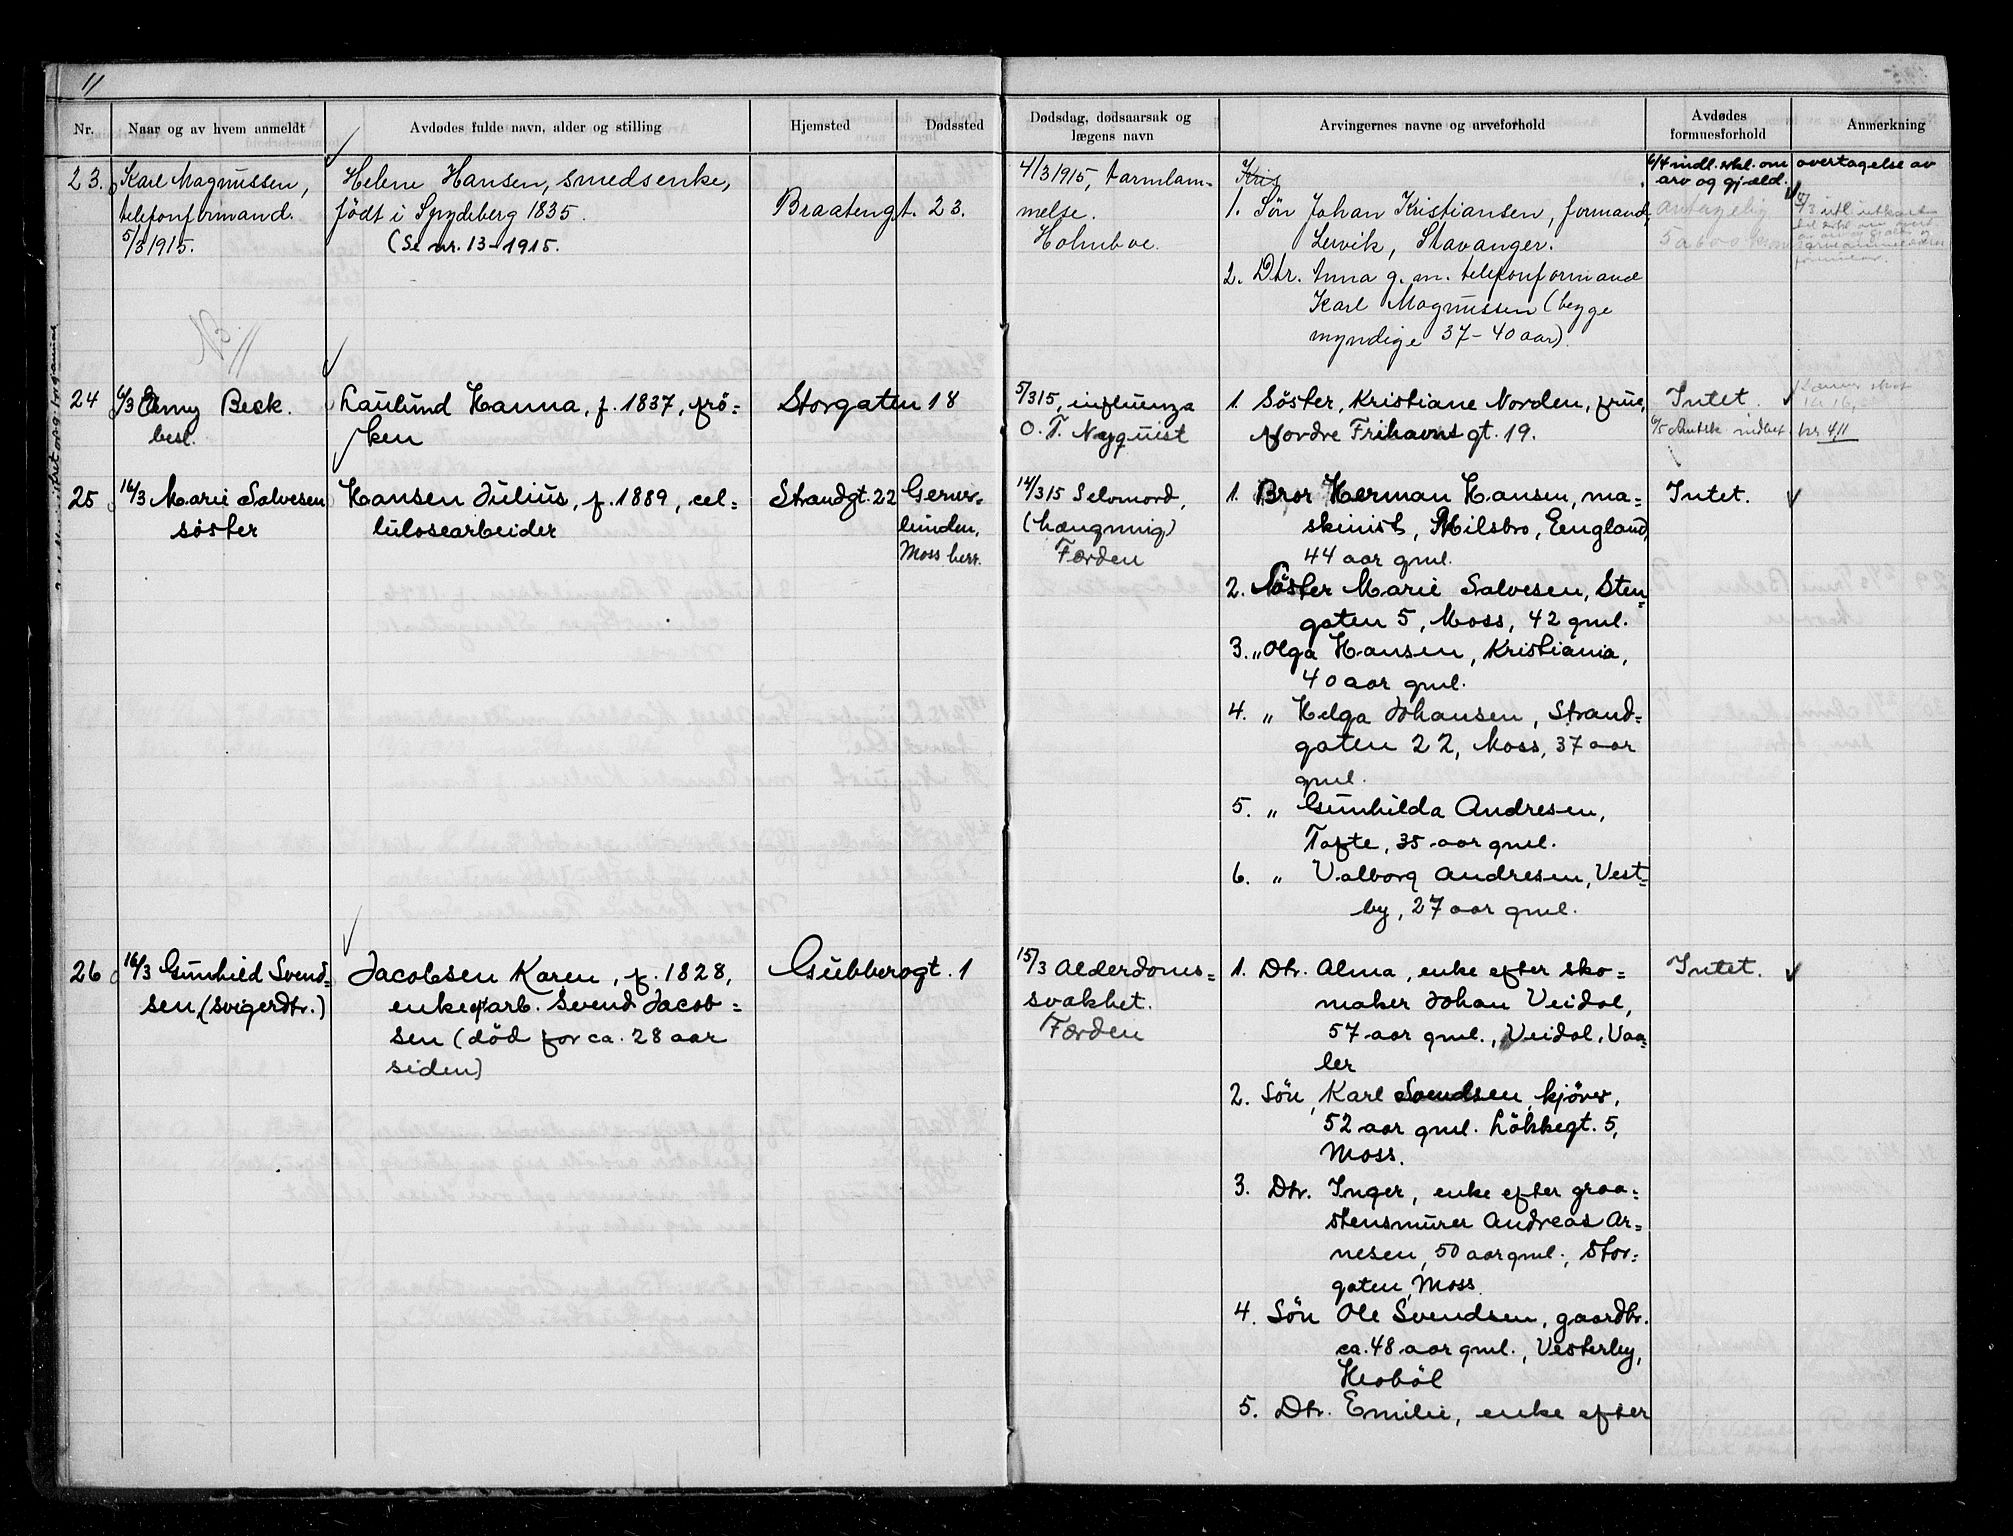 11
Nr.
Naar og av hvem anmeldt
Avdødes fulde navn, alder og stilling
Hjemsted
Dødssted
Dødsdag, dødsaarsak og
lægens navn
Arvingernes navne og arveforhold
Avdødes
formuesforhold
Anmerkning
23.
Karl Magnussen,
telefonformand.
5/3 1915.
Helene Hansen, smedsenke,
født i Spydeberg 1835.
(Se nr. 13-1915.
Braatengt. 23.
4/3 1915, tarmlam-
melse.
Holmboe.
Kris
1. Søn Johan Kristiansen, formand,
Lervik, Stavanger.
2. Dtr. Anna g. m. telefonformand
Karl Magnussen (begge
myndige 37-40 aar).
6/4 indl. erkl. om overtagelse av
arv og gjæld.
antagelig
NB. 11
24
6/3 Emmy Beck.
best.
Laulund Hanna, f. 1837, frö=
ken
Storgaten 18
5/3 15, influenza
O. T. Nyquist
1. Söster, Kristiane Norden, frue,
Nordre Frihavns gt. 19.
Intet.
kr 4,11
25
16/3 Marie Salvesen
söster
Hansen Julius, f. 1889, cel=
lulosearbeider
Strandgt. 22
lunden,
Moss herr.
14/3 15 Selvmord,
(hængning)
Færden
1. Bror Herman Hansen, ma=
skinist, Milsbro, England,
44 aar gml.
2. Söster Marie Salvesen, Sten=
gaten 5, Moss, 42 gml.
3. „ Olga Hansen, Kristiania,
40 aar gml.
4. „ Helga Johansen, Strand=
gaten 22, Moss, 37 aar
gml.
5. „ Gunhilda Andresen,
Tofte, 35 aar gml.
6. „ Valborg Andresen, Vest=
by, 27 aar gml.
Intet.
26
16/3 Gunhild Svend=
sen, (svigerdtr.)
Jacobsen Karen, f. 1828,
enke e/ arb. Svend Jacob=
sen (död for ca. 28 aar
siden)
Gubberogt. 1
15/3 Alderdoms=
svakhet.
Færden
1. Dtr. Alma, enke efter sko=
maker Johan Veidal,
57 aar gml., Veidal, Vaa=
ler
2. Sön, Karl Svendsen, kjörer,
52 aar gml. Lökkegt. 5,
Moss.
3. Dtr. Inger, enke efter graa=
stensmurer Andreas Ar=
nesen, 50 aar gml., Stor=
gaten, Moss.
4. Sön Ole Svendsen, gaardbr.
ca. 48 aar gml., Vesterby,
Hobøl
5. Dtr. Emilie, enke efter
Intet.